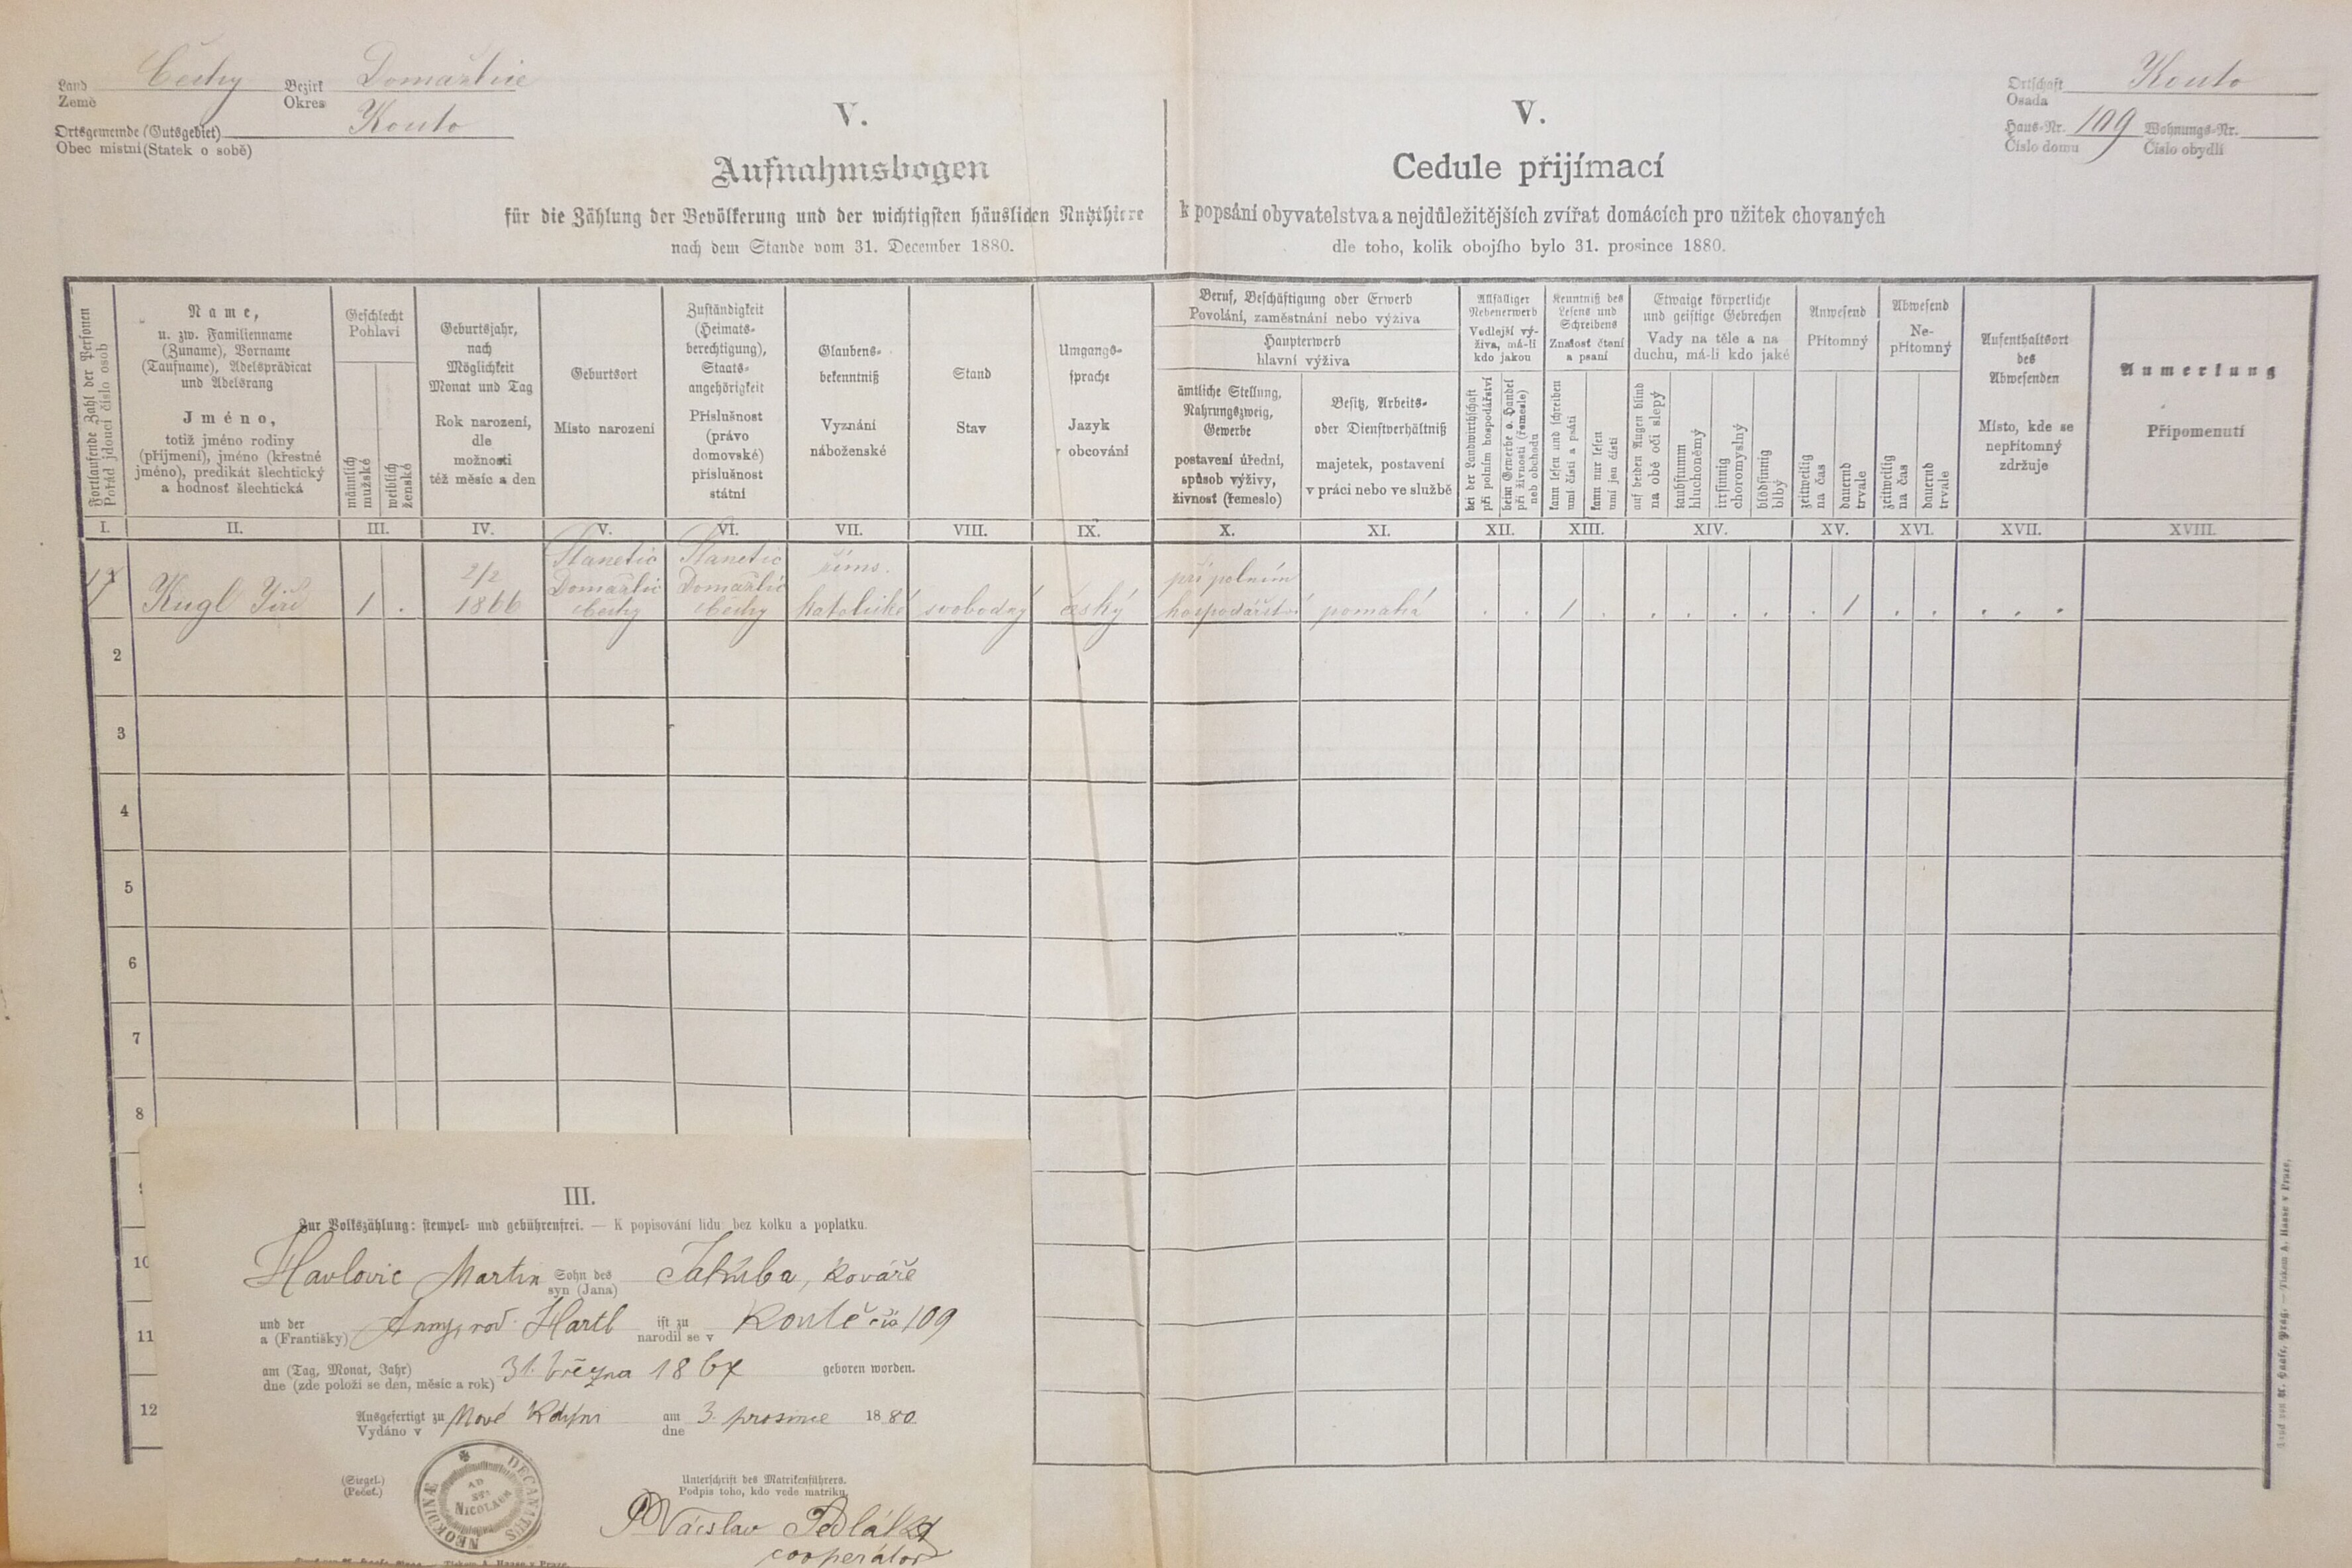 Land Čechy Bezirk Domažlice
Země Okres
Ortsgemeinde (Gutsgebiet) Kouto
Obec místní (Statek o sobě)
V.
Aufnahmsbogen
für die Zählung der Bevölkerung und der wichtigsten häuslichen Nutzthiere
nach dem Stande vom 31. December 1880.
V.
Cedule přijímací
k popsání obyvatelstva a nejdůležitějších zvířat domácích pro užitek chovaných
dle toho, kolik obojího bylo 31. prosince 1880.
Ortschaft Kouto
Osada
Haus-Nr. 109 Wohnungs-Nr.
Číslo domu Číslo obydlí
Fortlaufende Zahl der Personen
Pořád jdoucí číslo osob
Name,
u. zw. Familienname
(Zuname), Vorname
(Taufname), Adelsprädicat
und Adelsrang
Jméno,
totiž jméno rodiny
(příjmení), jméno (křestné
jméno), predikát šlechtický
a hodnost šlechtická
Geschlecht
Pohlaví
männlich
mužské
weiblich
ženské
Geburtsjahr,
nach
Möglichkeit
Monat und Tag
Rok narození,
dle
možnosti
též měsíc a den
Geburtsort
Místo narození
Zuständigkeit
(Heimats-
berechtigung),
Staats-
angehörigkeit
Příslušnost
(právo
domovské)
příslušnost
státní
Glaubens-
bekenntniß
Vyznání
náboženské
Stand
Stav
Umgangs-
sprache
Jazyk
obcování
Beruf, Beschäftigung oder Erwerb
Povolání, zaměstnání nebo výživa
Haupterwerb
hlavní výživa
ämtliche Stellung,
Nahrungszweig,
Gewerbe
postavení úřední,
spůsob výživy,
živnosť (řemeslo)
Besitz, Arbeits-
oder Dienstverhältniß
majetek, postavení
v práci nebo ve službě
Allfälliger
Nebenerwerb
Vedlejší vý-
živa, má-li
kdo jakou
bei der Landwirthschaft
při polním hospodářství
beim Gewerbe o. Handel
při živnosti (řemesle)
neb obchodu
Kenntniß des
Lesens und
Schreibens
Znalost čtení
a psaní
kann lesen und schreiben
umí čísti a psáti
kann nur lesen
umí jen čísti
Etwaige körperliche
und geistige Gebrechen
Vady na těle a na
duchu, má-li kdo jaké
auf beiden Augen blind
na obě oči slepý
taubstumm
hluchoněmý
irrsinnig
choromyslný
blödsinnig
blbý
Anwesend
Přítomný
zeitweilig
na čas
dauernd
trvale
Abwesend
Ne-
přítomný
zeitweilig
na čas
dauernd
trvale
Aufenthaltsort
des
Abwesenden
Místo, kde se
nepřítomný
zdržuje
Anmerkung
Připomenutí
I. II. III. IV. V. VI. VII. VIII. IX. X. XI. XII. XIII. XIV. XV. XVI. XVII. XVIII.
Stanetic Stanetic
2/2 Domažlic Domažlic řims. při polním
17 Kugl Jiří 1 . 1866 Čechy Čechy katolické svobodný český hospodářství pomahá . . 1 . . . . . . 1 . . . . .
2
3
4
5
6
7
8
10
11
12
III.
Zur Volkszählung: stempel- und gebührenfrei. — K popisování lidu: bez kolku a poplatku.
Havlovic Martin Sohn des Jakuba, kováře
syn (Jana)
und der Anny, rod. Hartl ist zu Koutě čís 109
a (Františky) narodil se v
am (Tag, Monat, Jahr) 31. března 1867 geboren worden.
dne (zde položí se den, měsíc a rok)
Ausgefertigt zu Nové Kdyni am 3. prosince 1880
Vydáno v dne
(Siegel.)
(Pečeť.)
DECANATUS NEOKDINÆ
AD
NICOLAUM
Unterschrift des Matrikenführers.
Podpis toho, kdo vede matriku.
P Václav Sedlák
cooperátor
Druck von A. Haase, Prag. — Tiskem A. Haase v Praze.